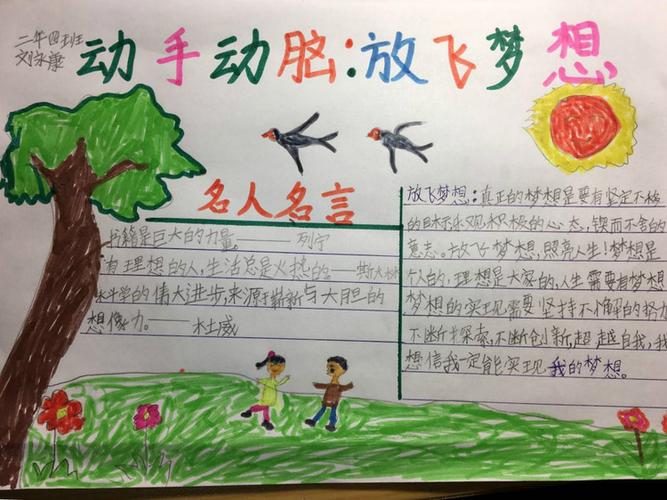 二年四班
刘永康
动手动脑:放飞梦想
名人名言
书籍是巨大的力量。——列宁
有理想的人,生活总是火热的——斯大林
科学的伟大进步,来源于崭新与大胆的
想像力。——杜威
放飞梦想:真正的梦想是要有坚定不移
的目标乐观积极的心态,锲而不舍的
意志。放飞梦想,照亮人生!梦想是
个人的,理想是大家的,人生需要有梦想
梦想的实现需要坚持不懈的努力
不断探索,不断创新,超越自我,我
想信我一定能实现我的梦想。